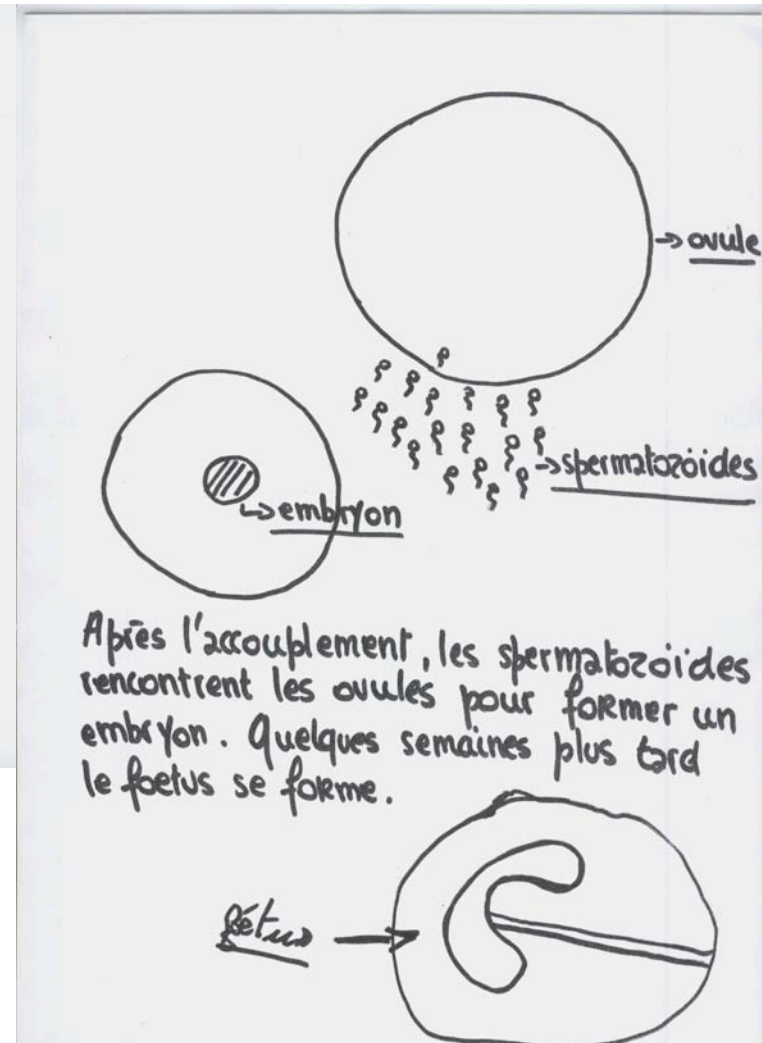 → ovule
→ spermatozoïdes
↳ embryon
Après l'accouplement, les spermatozoïdes
rencontrent les ovules pour former un
embryon. Quelques semaines plus tard
le foetus se forme.
fétus →